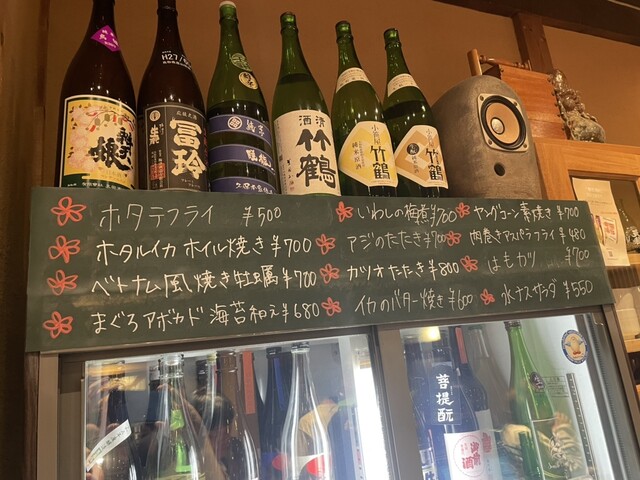 H27/
冨玲
清酒
竹鶴
小笹屋
竹鶴
純米原酒
小笹屋
竹鶴
ホタテフライ ¥500
ホタルイカ ホイル焼き ¥700
ベトナム風焼き牡蠣 ¥700
まぐろアボカド海苔和え ¥680
いわしの梅煮 ¥700
アジのたたき ¥700
カツオたたき ¥800
イカのバター焼き ¥600
ヤングコーン素焼き ¥700
肉巻きアスパラフライ ¥480
はもカツ ¥700
水ナスサラダ ¥550
菩提酛
酒